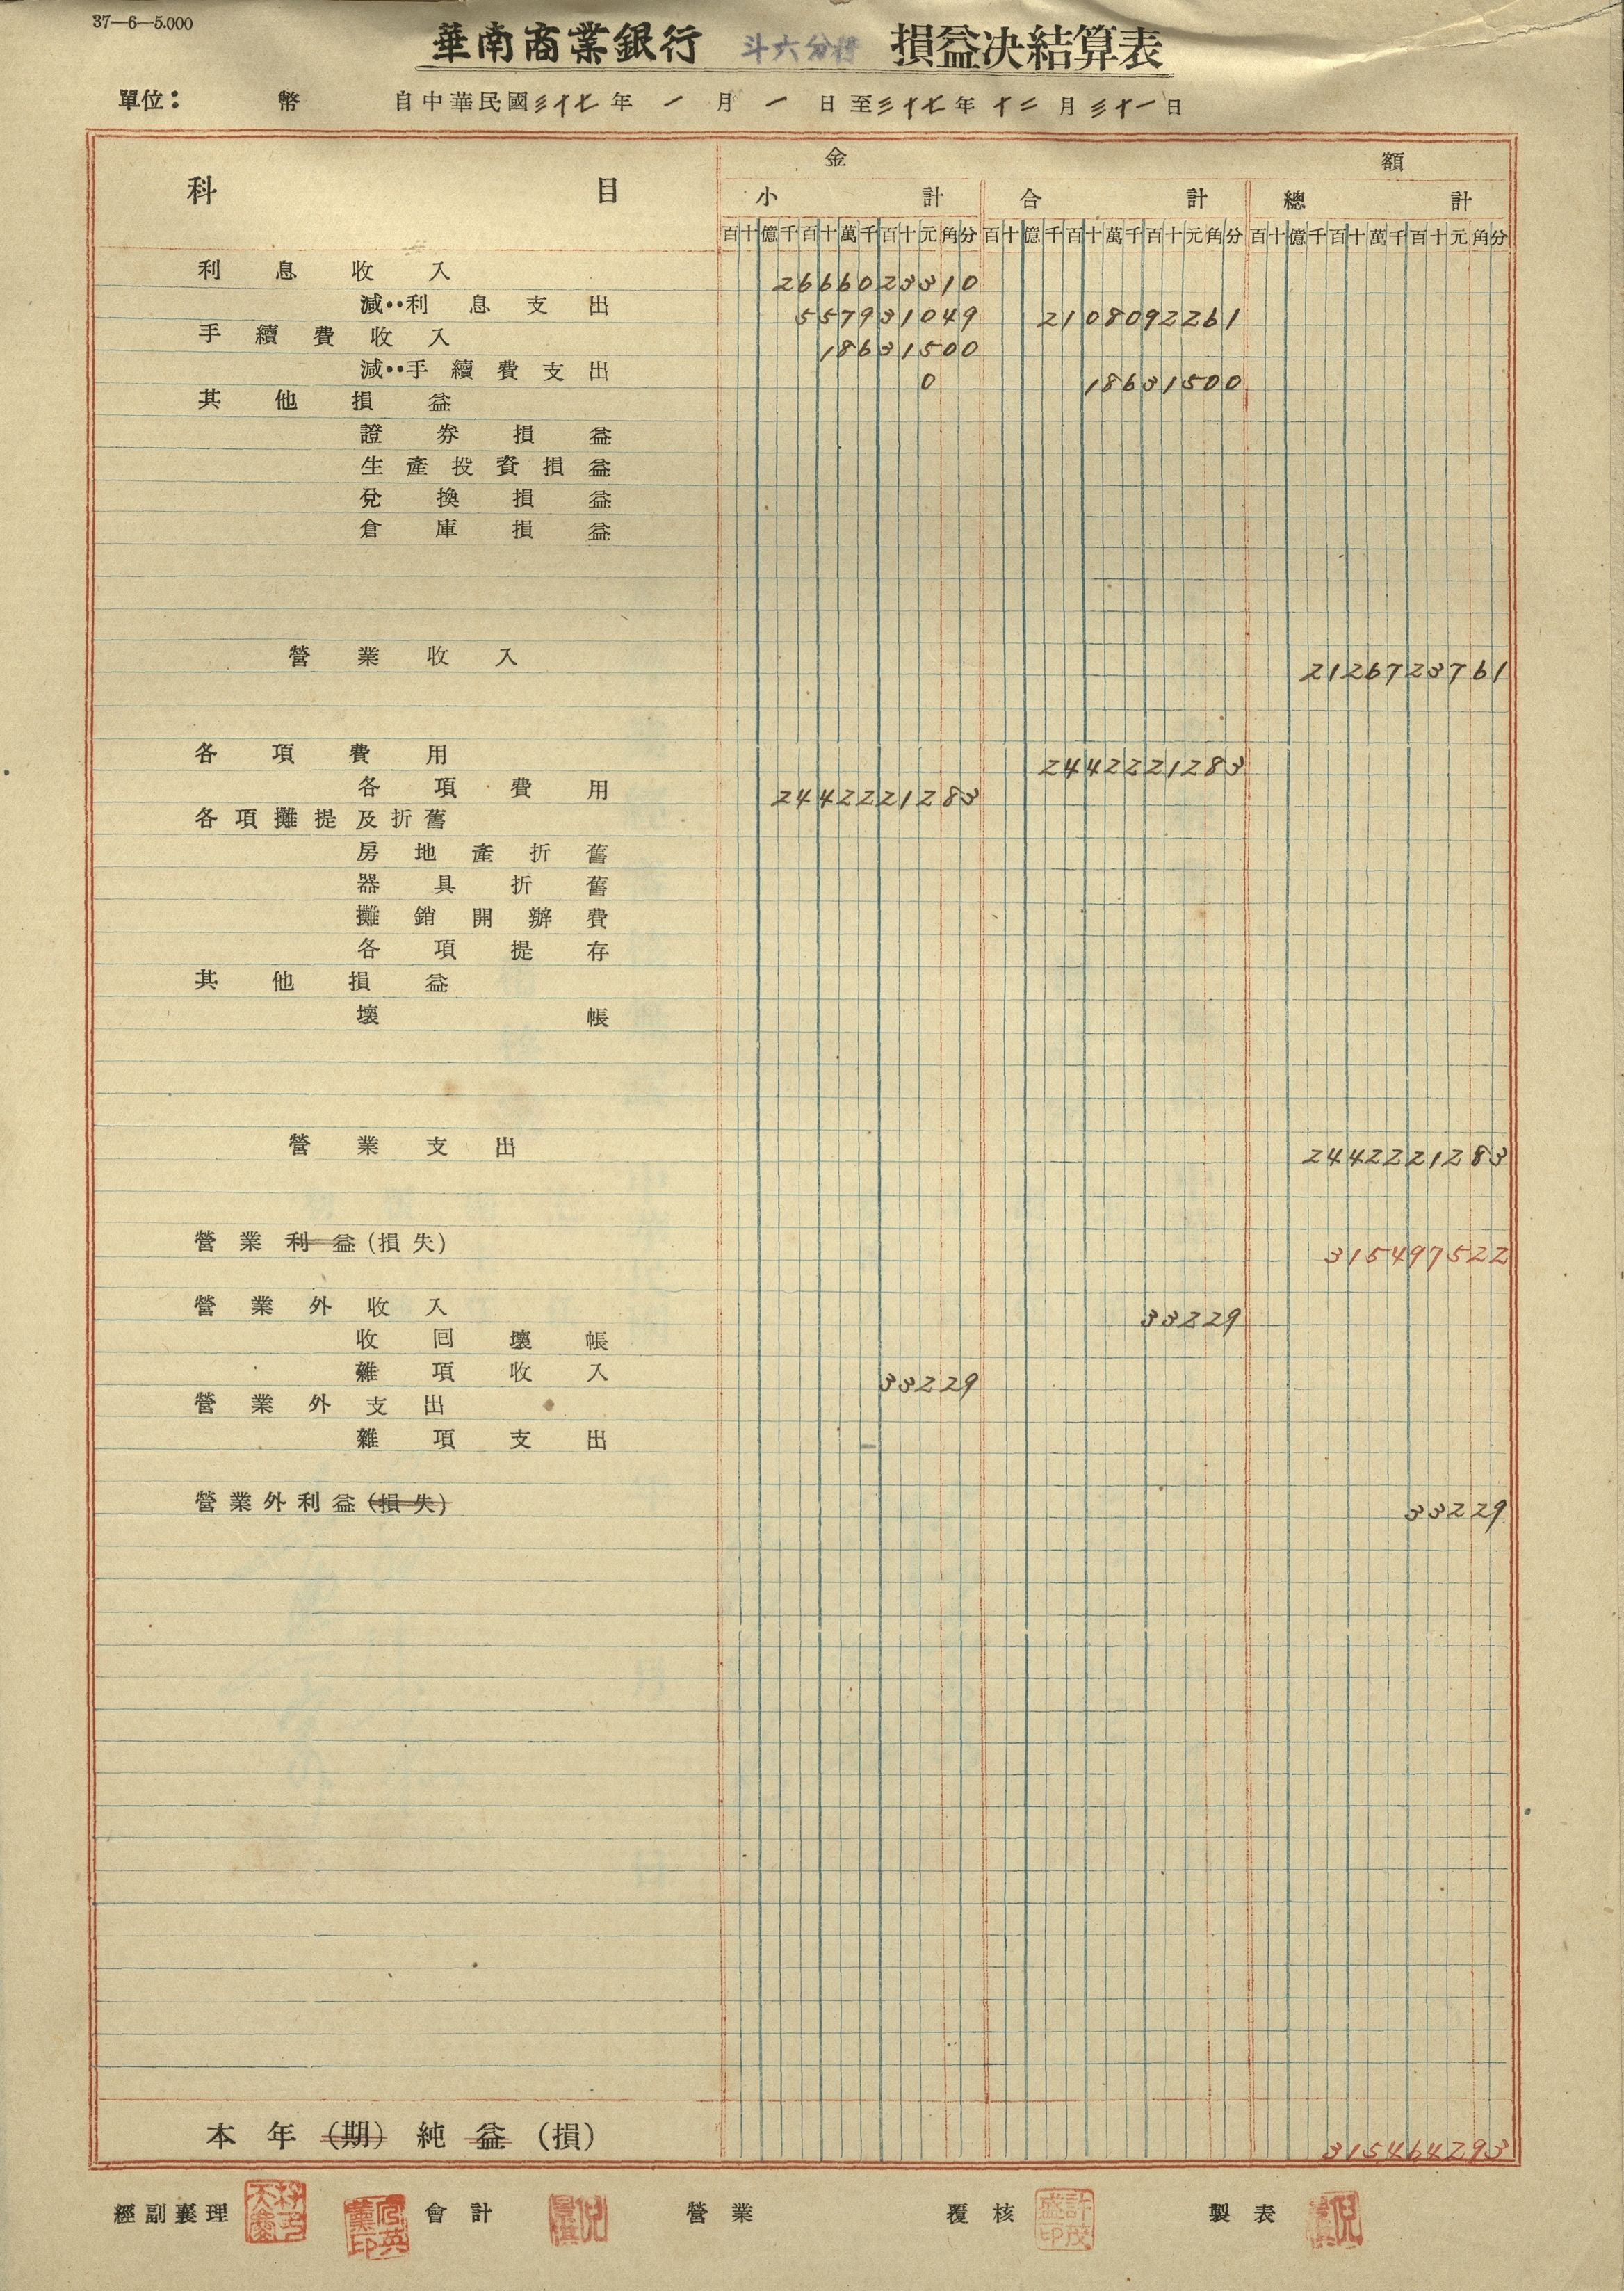 37—6—5.000
華南商業銀行 斗六分行 損益決結算表
單位： 幣 自中華民國三十七年一月一日至三十七年十二月三十一日
科目 金額
小計 合計 總計
百十億千百十萬千百十元角分 百十億千百十萬千百十元角分 百十億千百十萬千百十元角分
利息收入 2666023310
減：利息支出 557931049 2108092261
手續費收入 18631500
減：手續費支出 0 18631500
其他損益
證券損益
生產投資損益
兌換損益
倉庫損益
營業收入 2126723761
各項費用 2442221283
各項費用 2442221283
各項攤提及折舊
房地產折舊
器具折舊
攤銷開辦費
各項提存
其他損益
壞帳
營業支出 2442221283
營業利益(損失) 315497522
營業外收入 33229
收回壞帳
雜項收入 33229
營業外支出
雜項支出
營業外利益(損失) 33229
本年(期)純益(損) 315464293
經副襄理 會計 營業 覆核 許茂盛印 製表